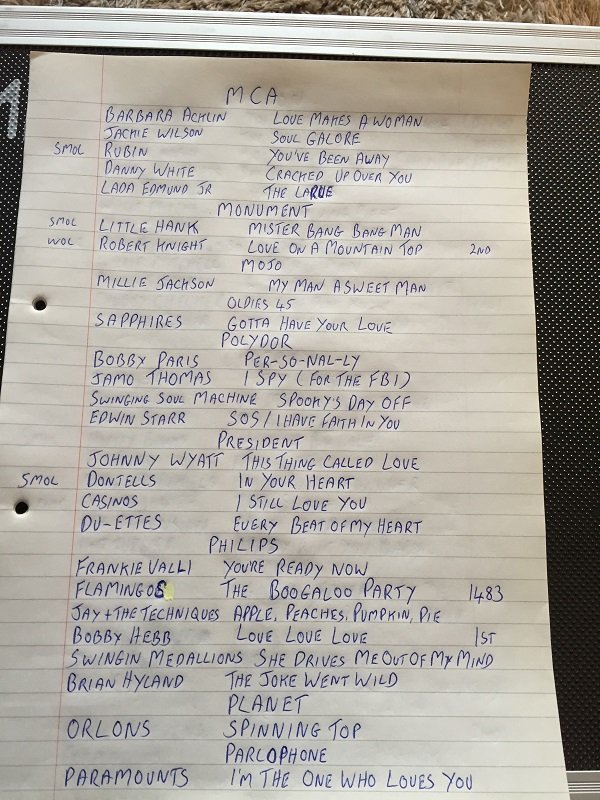 MCA
BARBARA ACKLIN LOVE MAKES A WOMAN
JACKIE WILSON SOUL GALORE
SMOL RUBIN YOU'VE BEEN AWAY
DANNY WHITE CRACKED UP OVER YOU
LADA EDMUND JR THE LARUE
MONUMENT
SMOL LITTLE HANK MISTER BANG BANG MAN
WOL ROBERT KNIGHT LOVE ON A MOUNTAIN TOP 2ND
MOJO
MILLIE JACKSON MY MAN A SWEET MAN
OLDIES 45
SAPPHIRES GOTTA HAVE YOUR LOVE
POLYDOR
BOBBY PARIS PER-SO-NAL-LY
JAMO THOMAS I SPY (FOR THE FBI)
SWINGING SOUL MACHINE SPOOKY'S DAY OFF
EDWIN STARR SOS / I HAVE FAITH IN YOU
PRESIDENT
JOHNNY WYATT THIS THING CALLED LOVE
SMOL DONTELLS IN YOUR HEART
CASINOS I STILL LOVE YOU
DU-ETTES EVERY BEAT OF MY HEART
PHILIPS
FRANKIE VALLI YOU'RE READY NOW
FLAMINGOS THE BOOGALOO PARTY 1483
JAY + THE TECHNIQUES APPLE, PEACHES, PUMPKIN, PIE
BOBBY HEBB LOVE LOVE LOVE 1ST
SWINGIN MEDALLIONS SHE DRIVES ME OUT OF MY MIND
BRIAN HYLAND THE JOKE WENT WILD
PLANET
ORLONS SPINNING TOP
PARLOPHONE
PARAMOUNTS I'M THE ONE WHO LOVES YOU